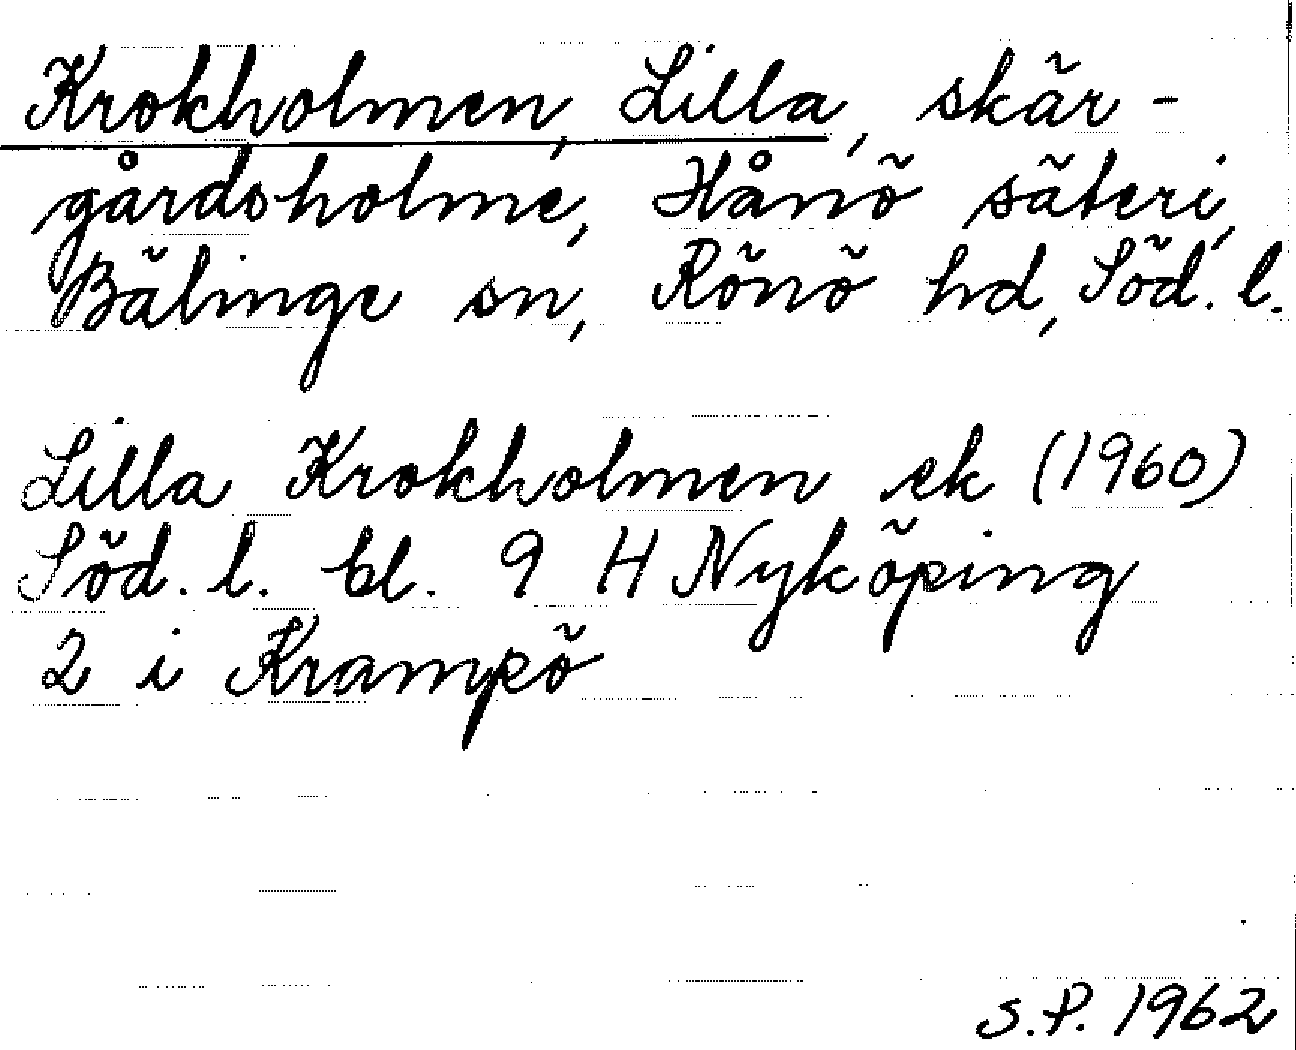 Krokholmen, Lilla, skär-
gårdsholme, Hånö säteri,
Bälinge sn, Rönö hd, Söd. l.
Lilla Krokholmen ek (1960)
Söd. l. bl. 9 H Nyköping
2 i Krampö
S.P. 1962